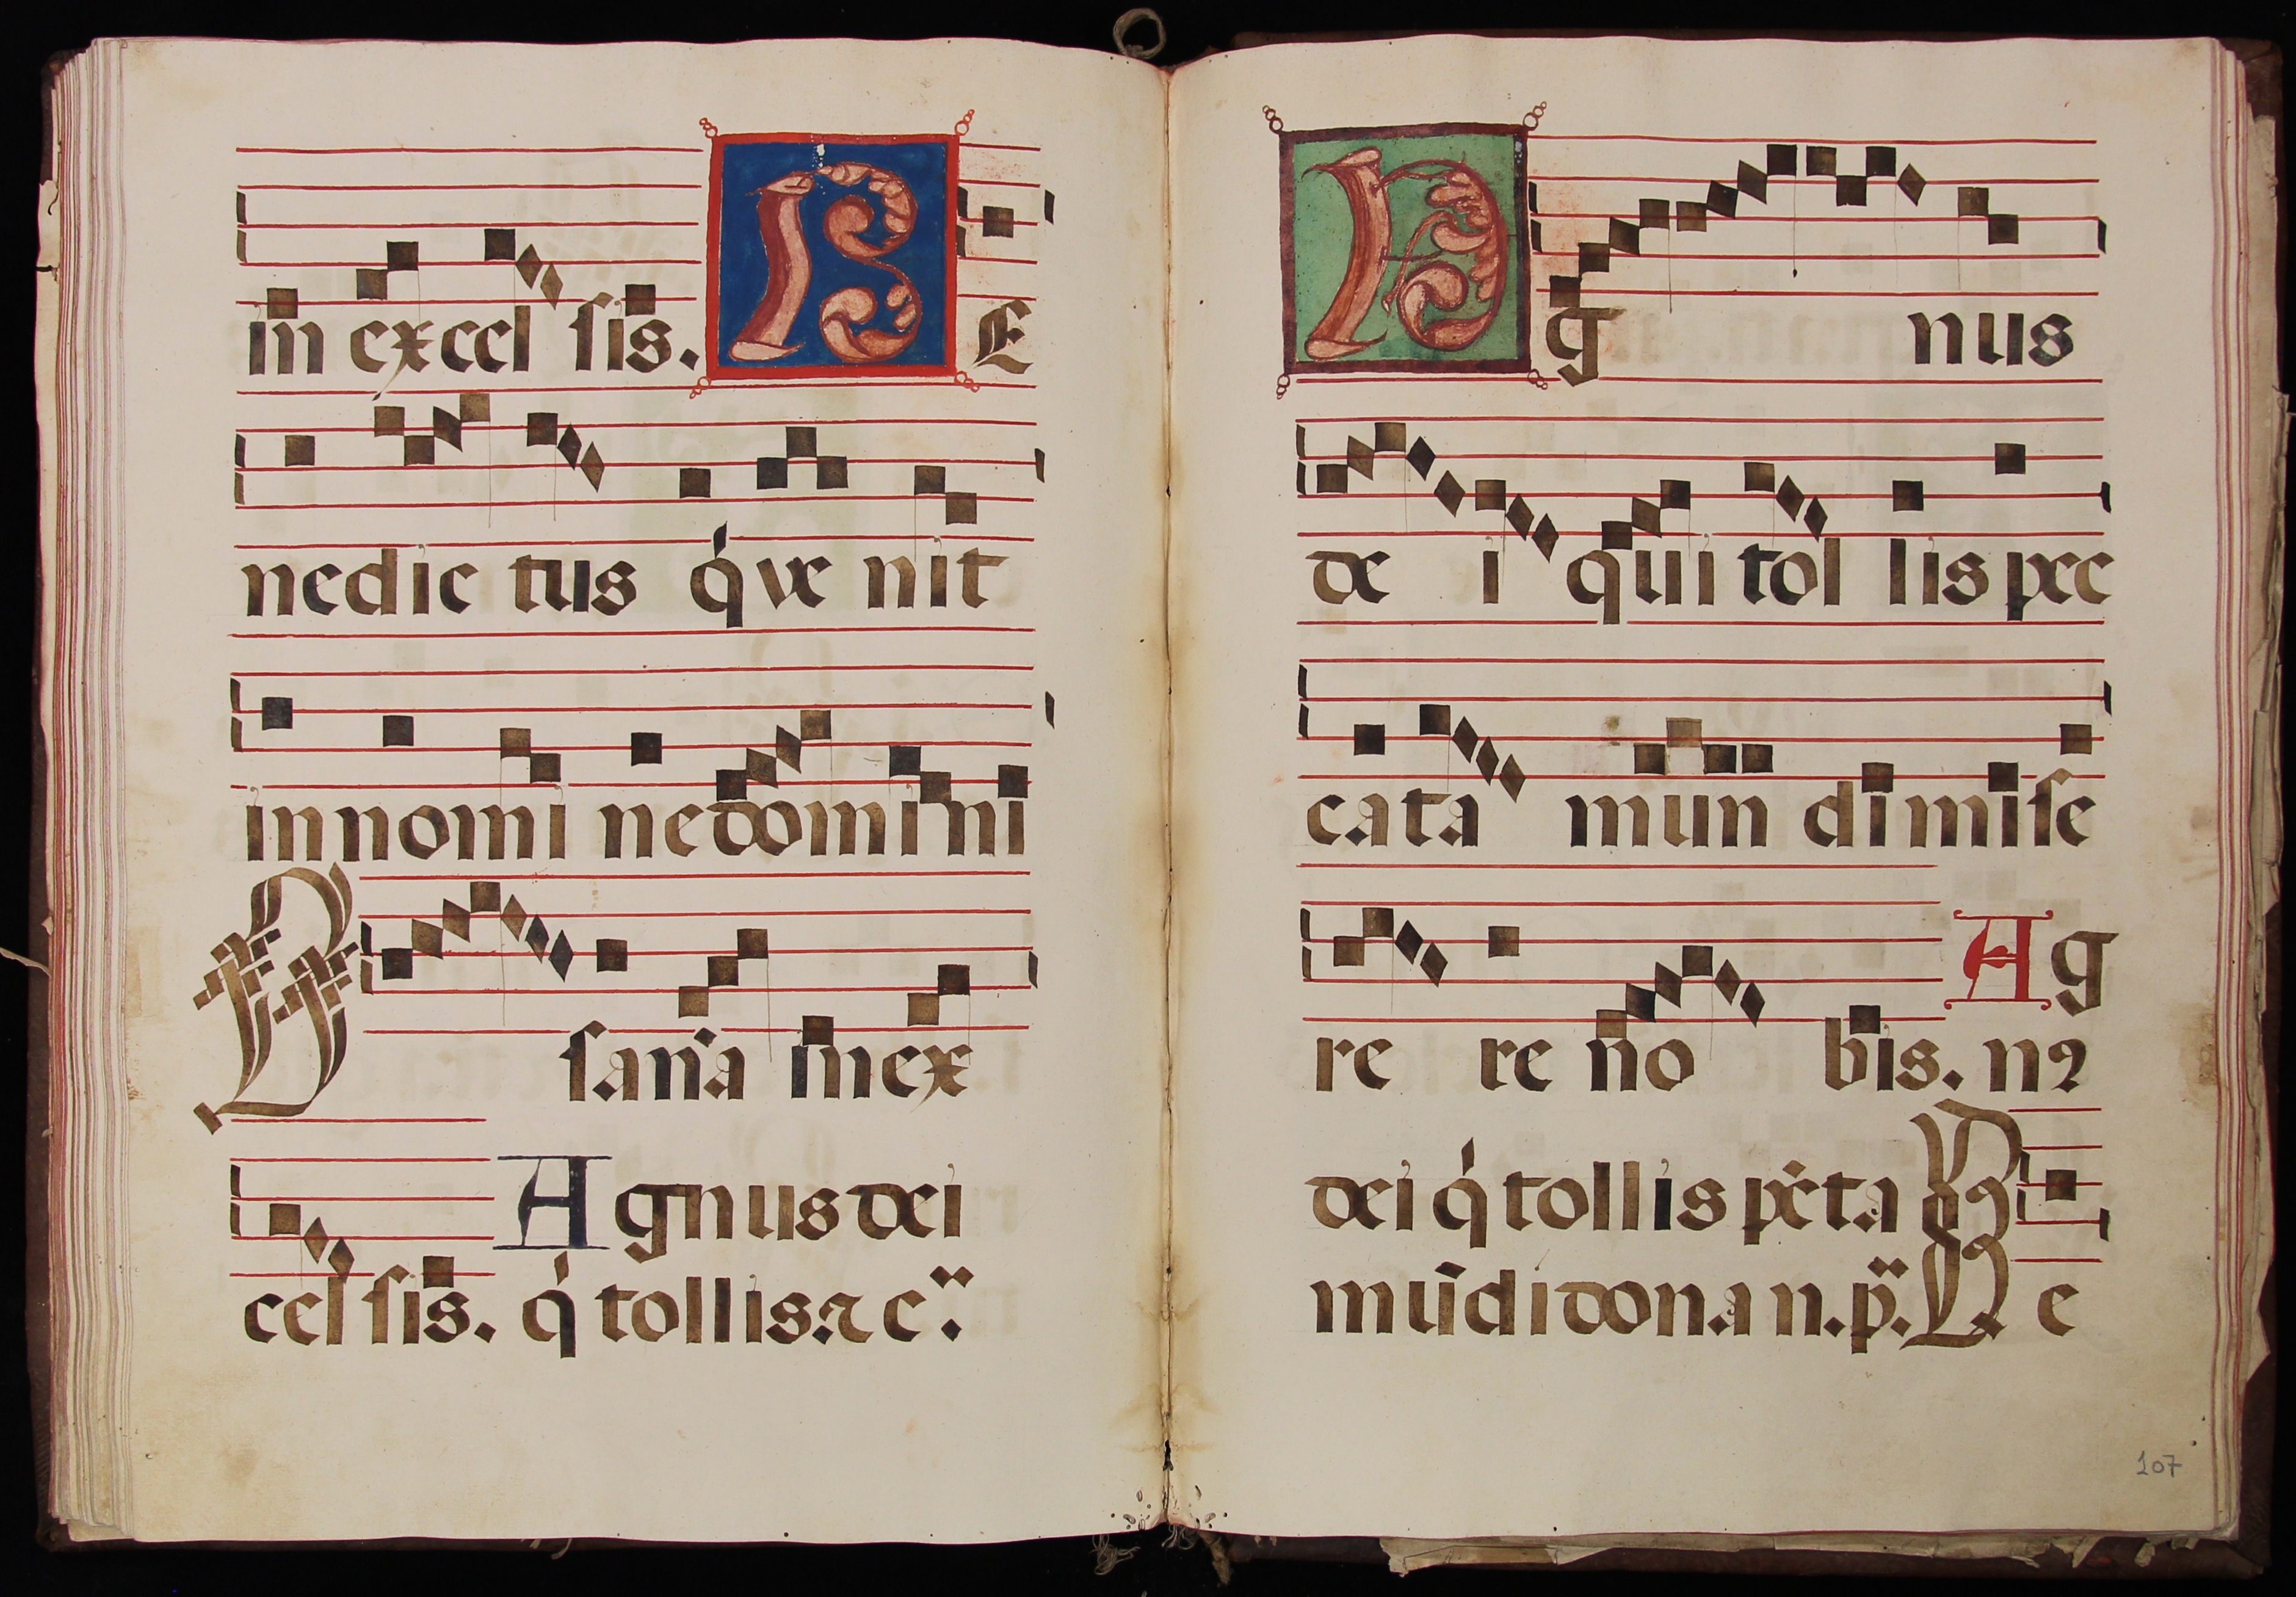 in excel sis. B E
nedic tus q̇ ve nit
in nomi ne domi ni
O sanā in ex
cel sis. Agnus dei
q̇ tollis ⁊ c̈.
A g nus
de i qui tol lis pec
cata mun di mise
re re no bis. Ag
nꝰ
dei q̇ tollis pc̄ta
mūdi dona n. p̈. B e
107